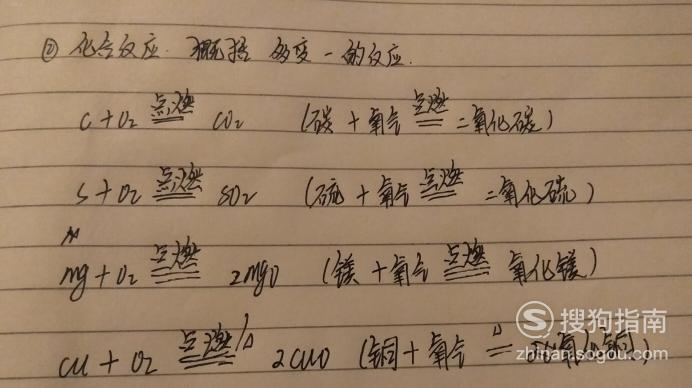 ② 化合反应. 概括 多变一的反应.
C + O₂ 点燃 CO₂ (碳 + 氧气 点燃 二氧化碳)
S + O₂ 点燃 SO₂ (硫 + 氧气 点燃 二氧化硫)
Mg + O₂ 点燃 2MgO (镁 + 氧气 点燃 氧化镁)
Cu + O₂ 点燃/△ 2CuO (铜 + 氧气 △ 氧化铜)
搜狗指南
zhinan.sogou.com